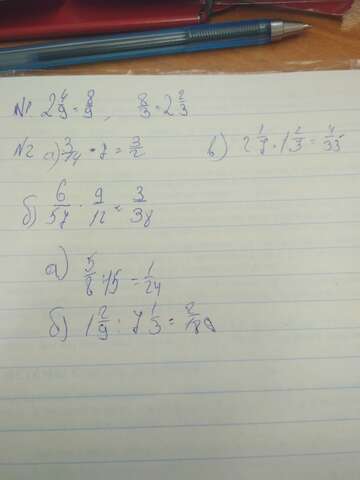 №1 2 4/9 = 8/9 , 8/3 = 2 2/3
№2 а) 3/14 · 7 = 3/2 в) 2 1/7 · 1 2/3 = 4/35
б) 6/57 · 9/12 = 3/38
а) 5/8 : 15 = 1/24
б) 1 2/9 : 7 1/3 =